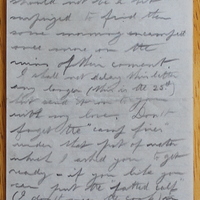 should not be a bit
surprized to find them
some morning encamped
once more on the
ruins of their convent.
I shall not delay this letter
any longer (this is the 25th)
but send it on to you
with my love. Don't
forget the "camp fire
under that pot of water
which I asked you to get
ready – if you like you
can put the fatted calf
(I don't